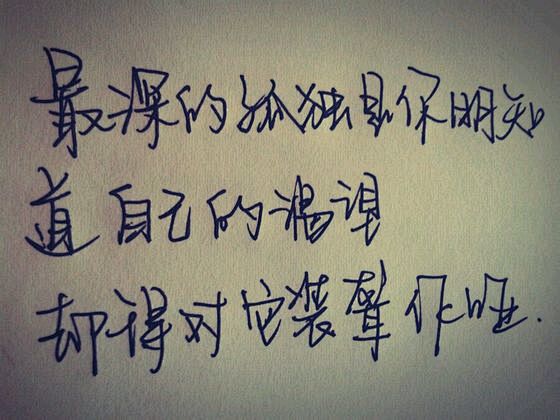 最深的孤独是你明知
道自己的渴望
却得对它装聋作哑.